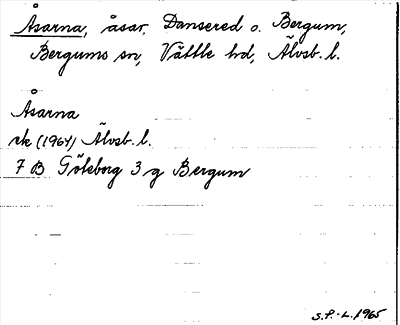 Åsarna, åsar, Dansered o. Bergum,
Bergums sn, Vättle hd, Älvsb. l.
Åsarna
rk (1964) Älvsb. l.
7 B Göteborg 3 g Bergum
S.P.-L. 1965